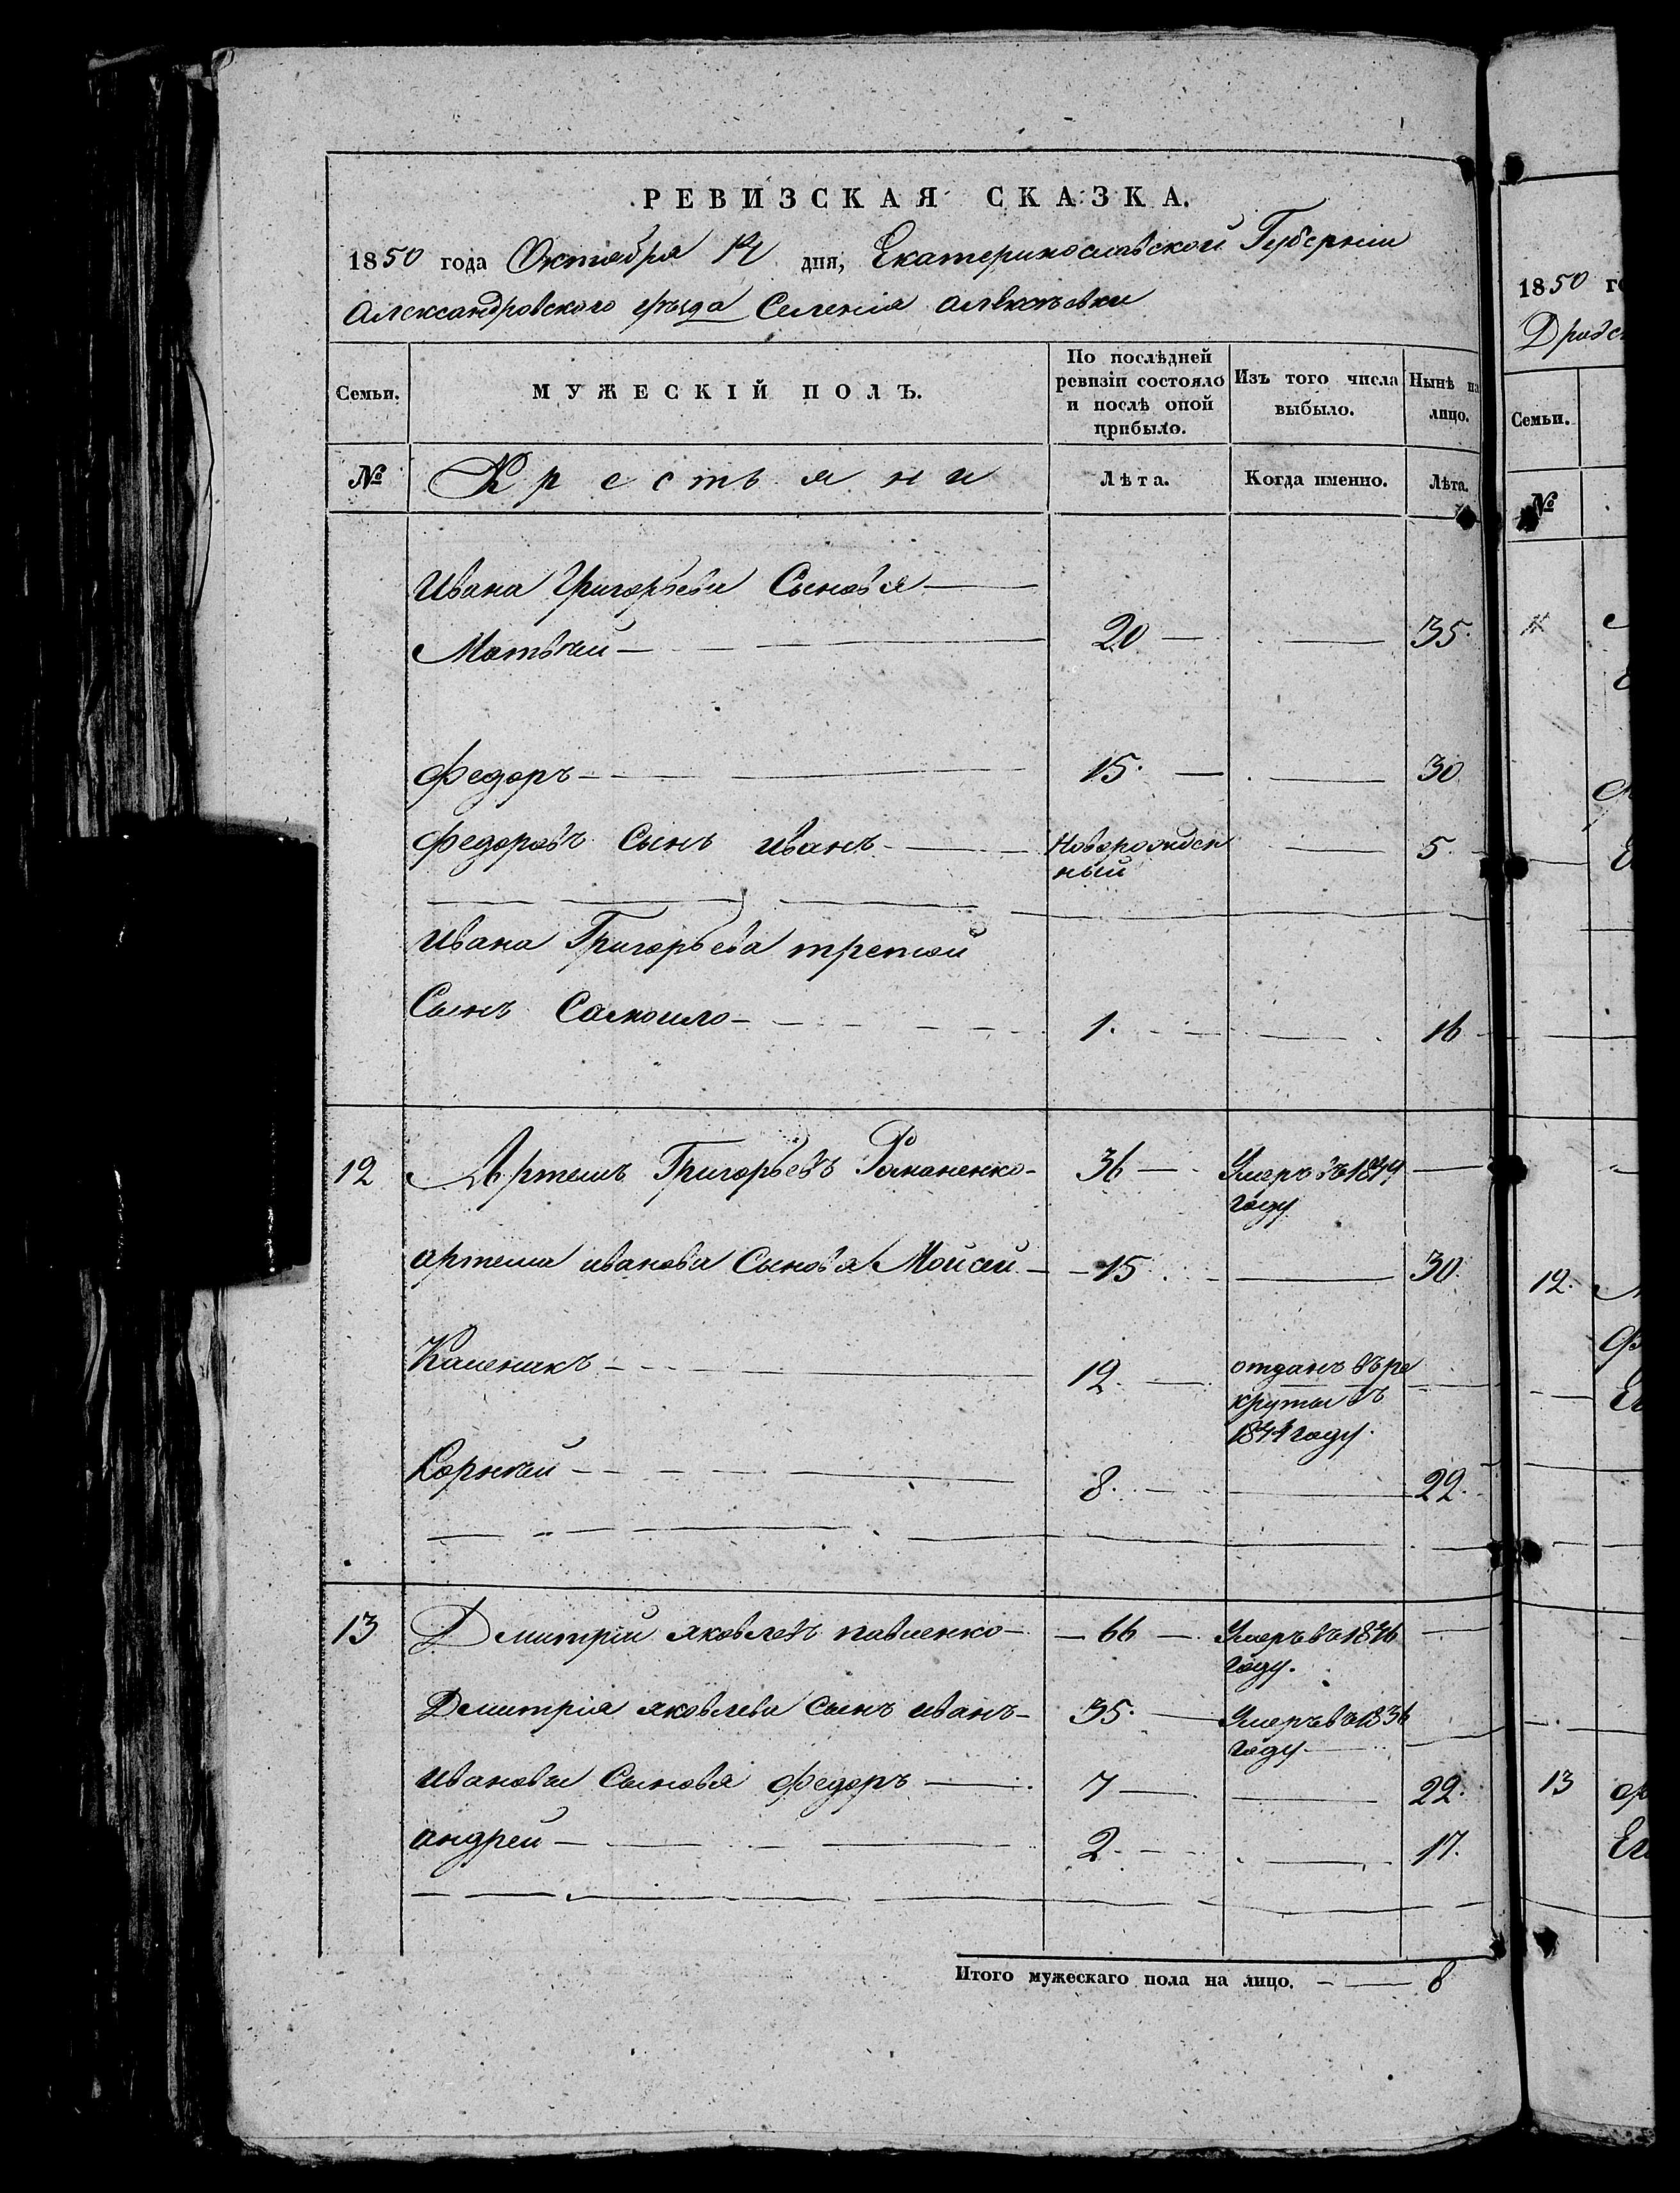 РЕВИЗСКАЯ СКАЗКА.
1850 года Октября 14 дня, Екатеринославской Губерніи
Александровского уѣзда Селенія
Семьи.
МУЖЕСКІЙ ПОЛЪ.
По послѣдней
ревизіи состояло
и послѣ оной
прибыло.
Изъ того числа
выбыло.
Нынѣ на
лицо.
№
Крестьяни
Лѣта.
Когда именно.
Лѣта.
Ивана Григорьева Сыновья
Матвѣй 20 35
Федоръ 15 30
Федоровъ Сынъ Иванъ Новорожден 5
ный
Ивана Григорьева третий
Сынъ Самоило 1. 16
12 Артемъ Григорьевъ Романенко 36 Умеръ въ 1844
году
Артема иванова Сыновья Мойсей 15 30
Каленикъ 12. отданъ въ ре
круты въ
1841 году.
Корнѣй 8. 22.
13 Дмитрий яковлевъ павленко 66 Умеръ въ 1846
году.
Дмитрія яковлева сынъ иванъ 35. Умеръ въ 1836
году
Ивановы Сыновья Федоръ 7 22.
андрей 2. 17.
Итого мужескаго пола на лицо. 8
1850 го
Семьи.
№
12.
13